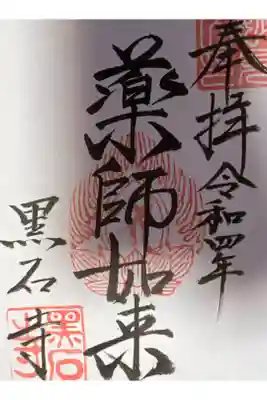 奉拝 令和四年
薬師如来
黒石寺